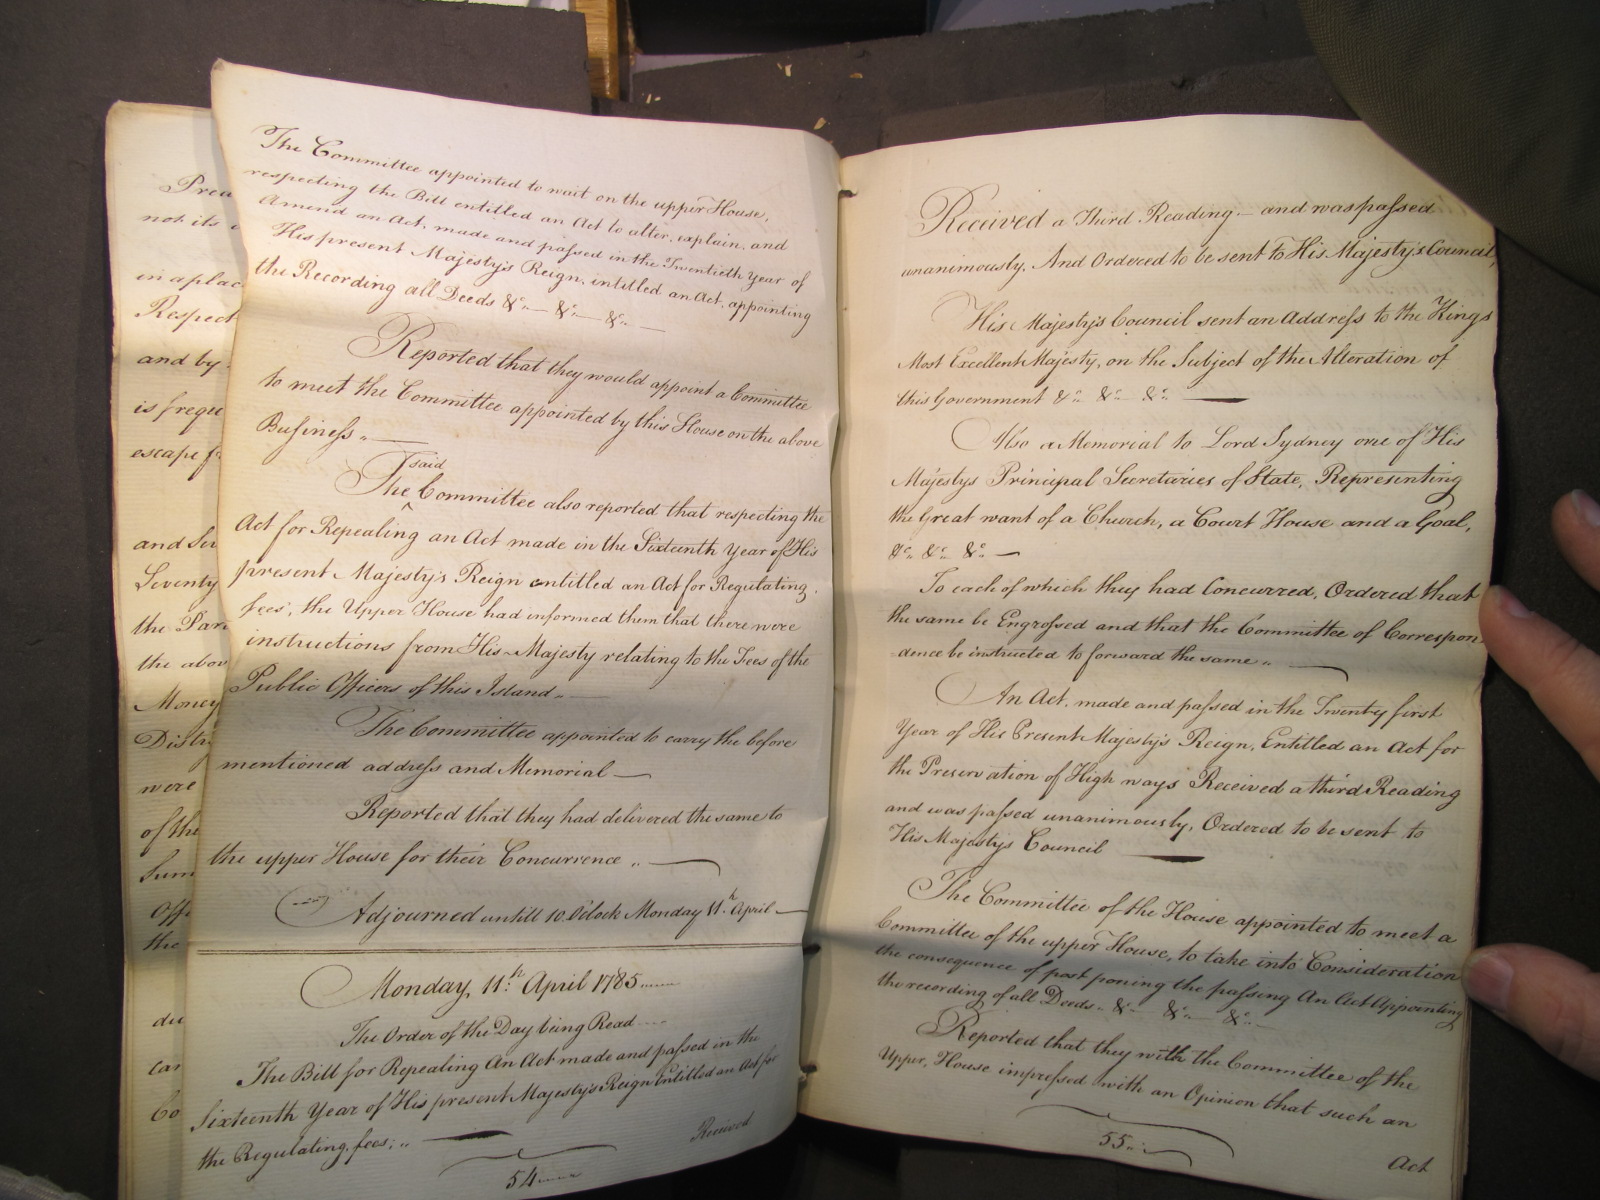 Prea
not its
in a plac
Respect
and by
is freque
escape f
and Sev
Seventy
the Par
the abov
Money
Distri
were
of the
Sum
Offi
the
du
can
Co
The Committee appointed to wait on the upper House,
respecting the Bill entitled an Act to alter, explain, and
Amend an Act, made and passed in the Twentieth Year of
His present Majesty's Reign, intitled an Act, appointing
the Recording all Deeds &c.. — &c.. — &c.. —
Reported that they would appoint a Committee
to meet the Committee appointed by this House on the above
Business.. —
said
The ^ Committee also reported that respecting the
Act for Repealing an Act made in the Sixteenth Year of His
present Majesty's Reign entitled an Act for Regulating
fees, the Upper House had informed them that there were
instructions from His Majesty relating to the Fees of the
Public Officers of this Island.. —
The Committee appointed to carry the before
mentioned address and Memorial —
Reported that they had delivered the same to
the upper House for their Concurrence .. —
Adjourned untill 10. O'Clock Monday 11th. April —
Monday, 11th. April 1785
The Order of the Day being Read
The Bill for Repealing An Act made and passed in the
Sixteenth Year of His present Majesty's Reign Entitled an Act for
the Regulating fees; .. —
Received
54
Received a Third Reading — and was passed
unanimously, And Ordered to be sent to His Majesty's Council,
His Majesty's Council sent an Address to the Kings
Most Excellent Majesty, on the Subject of the Alteration of
this Government &c.. &c.. &c.. —
Also a Memorial to Lord Sydney one of His
Majestys Principal Secretaries of State, Representing
the Great want of a Church, a Court House and a Goal,
&c.. &c.. &c.. —
To each of which they had Concurred, Ordered that
the same be Engrossed and that the Committee of Correspon
=dence be instructed to forward the same .. —
An Act, made and passed in the Twenty first
Year of His Present Majesty's Reign, Entitled an Act for
the Preservation of High ways Received a third Reading
and was passed unanimously, Ordered to be sent to
His Majestys Council —
The Committee of the House appointed to meet a
Committee of the upper House, to take into Consideration
the consequence of post poning the passing An Act Appointing
the recording of all Deeds - &c — &c.. — &c.. —
Reported that they with the Committee of the
Upper, House impressed with an Opinion that such an
55
Act